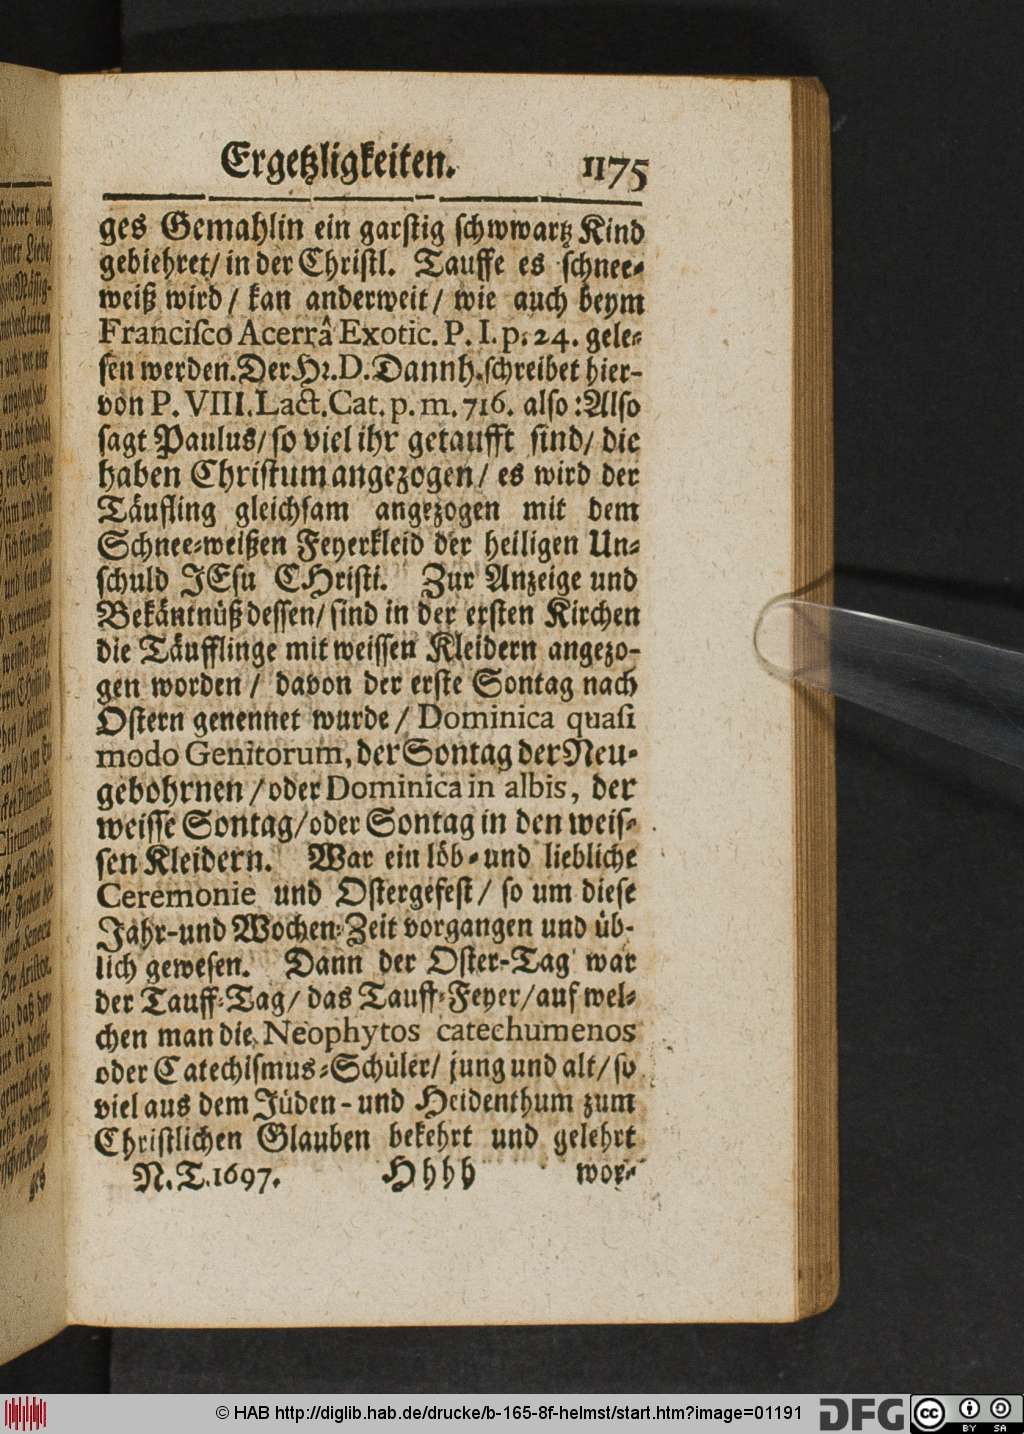 Ergetzligkeiten. 1175
ges Gemahlin ein garstig schwwartz Kind
gebiehret/ in der Christl. Tauffe es schnee-
weiß wird / kan anderweit / wie auch beym
Francisco Acerrâ Exotic. P. I. p. 24. gele-
sen werden. Der Hr. D. Dannh. schreibet hier-
von P. VIII. Lact. Cat. p. m. 716. also: Also
sagt Paulus/ so viel ihr getaufft sind/ die
haben Christum angezogen/ es wird der
Täufling gleichsam angezogen mit dem
Schnee-weißen Feyerkleid der heiligen Un-
schuld JEsu CHristi. Zur Anzeige und
Bekäntnüß dessen/ sind in der ersten Kirchen
die Täufflinge mit weissen Kleidern angezo-
gen worden / davon der erste Sontag nach
Ostern genennet wurde / Dominica quasi
modo Genitorum, der Sontag der Neu-
gebohrnen / oder Dominica in albis, der
weisse Sontag/ oder Sontag in den weis-
sen Kleidern. War ein löb- und liebliche
Ceremonie und Ostergefest/ so um diese
Jahr- und Wochen-Zeit vorgangen und üb-
lich gewesen. Dann der Oster-Tag war
der Tauff-Tag/ das Tauff-Feyer/ auf wel-
chen man die Neophytos catechumenos
oder Catechismus-Schüler/ jung und alt/ so
viel aus dem Jüden- und Heidenthum zum
Christlichen Glauben bekehrt und gelehrt
N. T. 1697. Hhhh wor-
© HAB http://diglib.hab.de/drucke/b-165-8f-helmst/start.htm?image=01191
DFG
cc BY SA